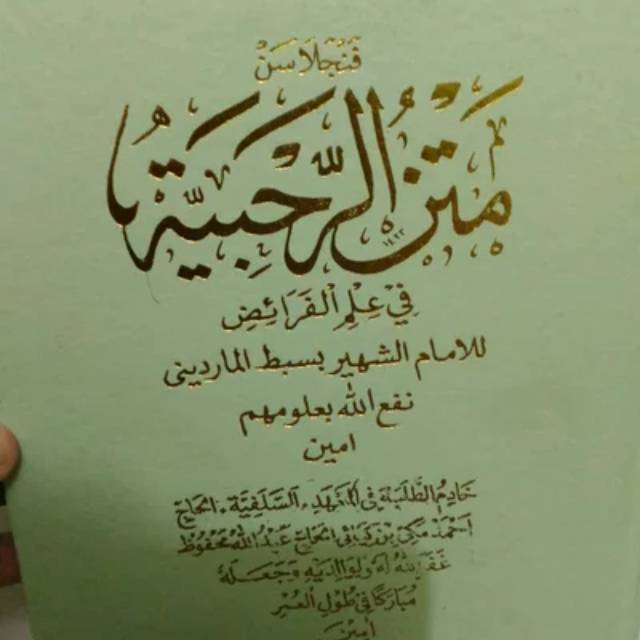 فنجلاسن
متن الرحبية
في علم الفرائض
للامام الشهير بسبط الماردينى
نفع الله بعلومهم
امين
خادم الطلبة في المعهد السلفية الحاج
احمد مكي بن كياهي الحاج عبد الله محفوظ
غفر الله له ولوالديه وتجعله
مباركا في طول العمر
امين